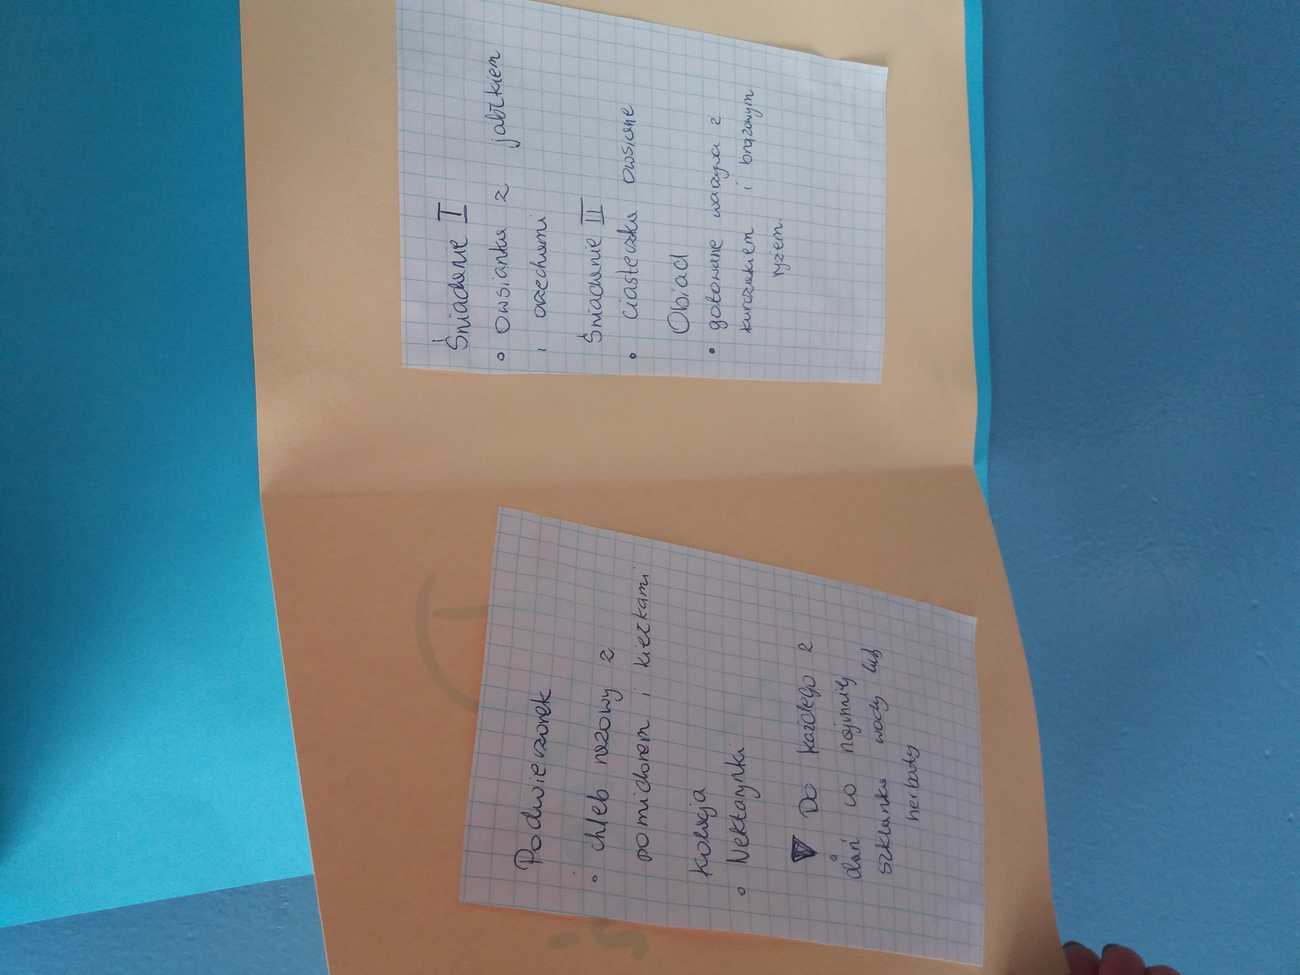 Śniadanie I
• owsianka z jabłkiem
i orzechami
Śniadanie II
• ciasteczka owsiane
Obiad
• gotowane warzywa z
kurczakiem i brązowym
ryżem.
Podwieczorek
• chleb razowy z
pomidorem i kiełkami
Kolacja
• Nektarynka
Do każdego z
dań co najmniej
szklanka wody lub
herbaty